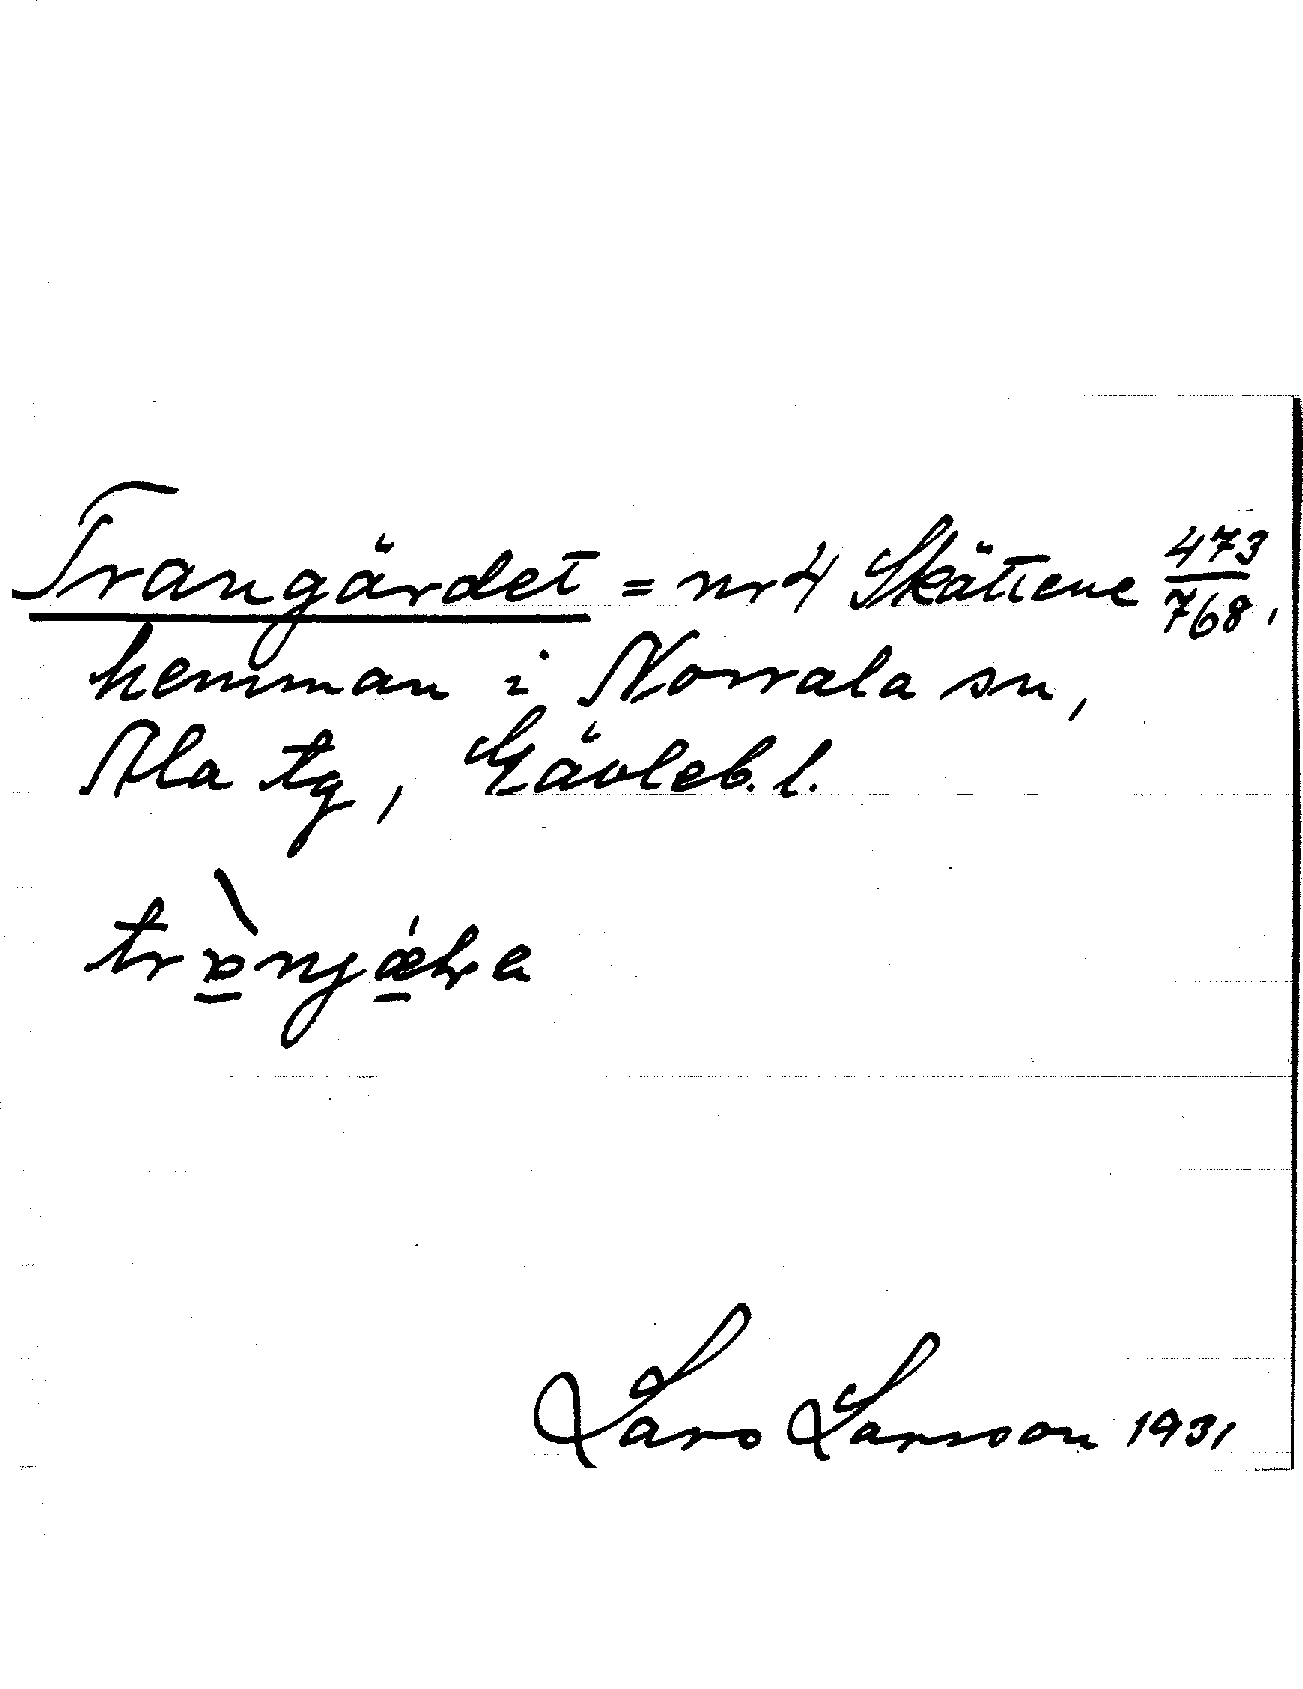 Trangärdet = nr 4 Skättene 473/768,
hemman i Norrala sn,
Ala tg, Gävleb. l.
Lars Larsson 1931